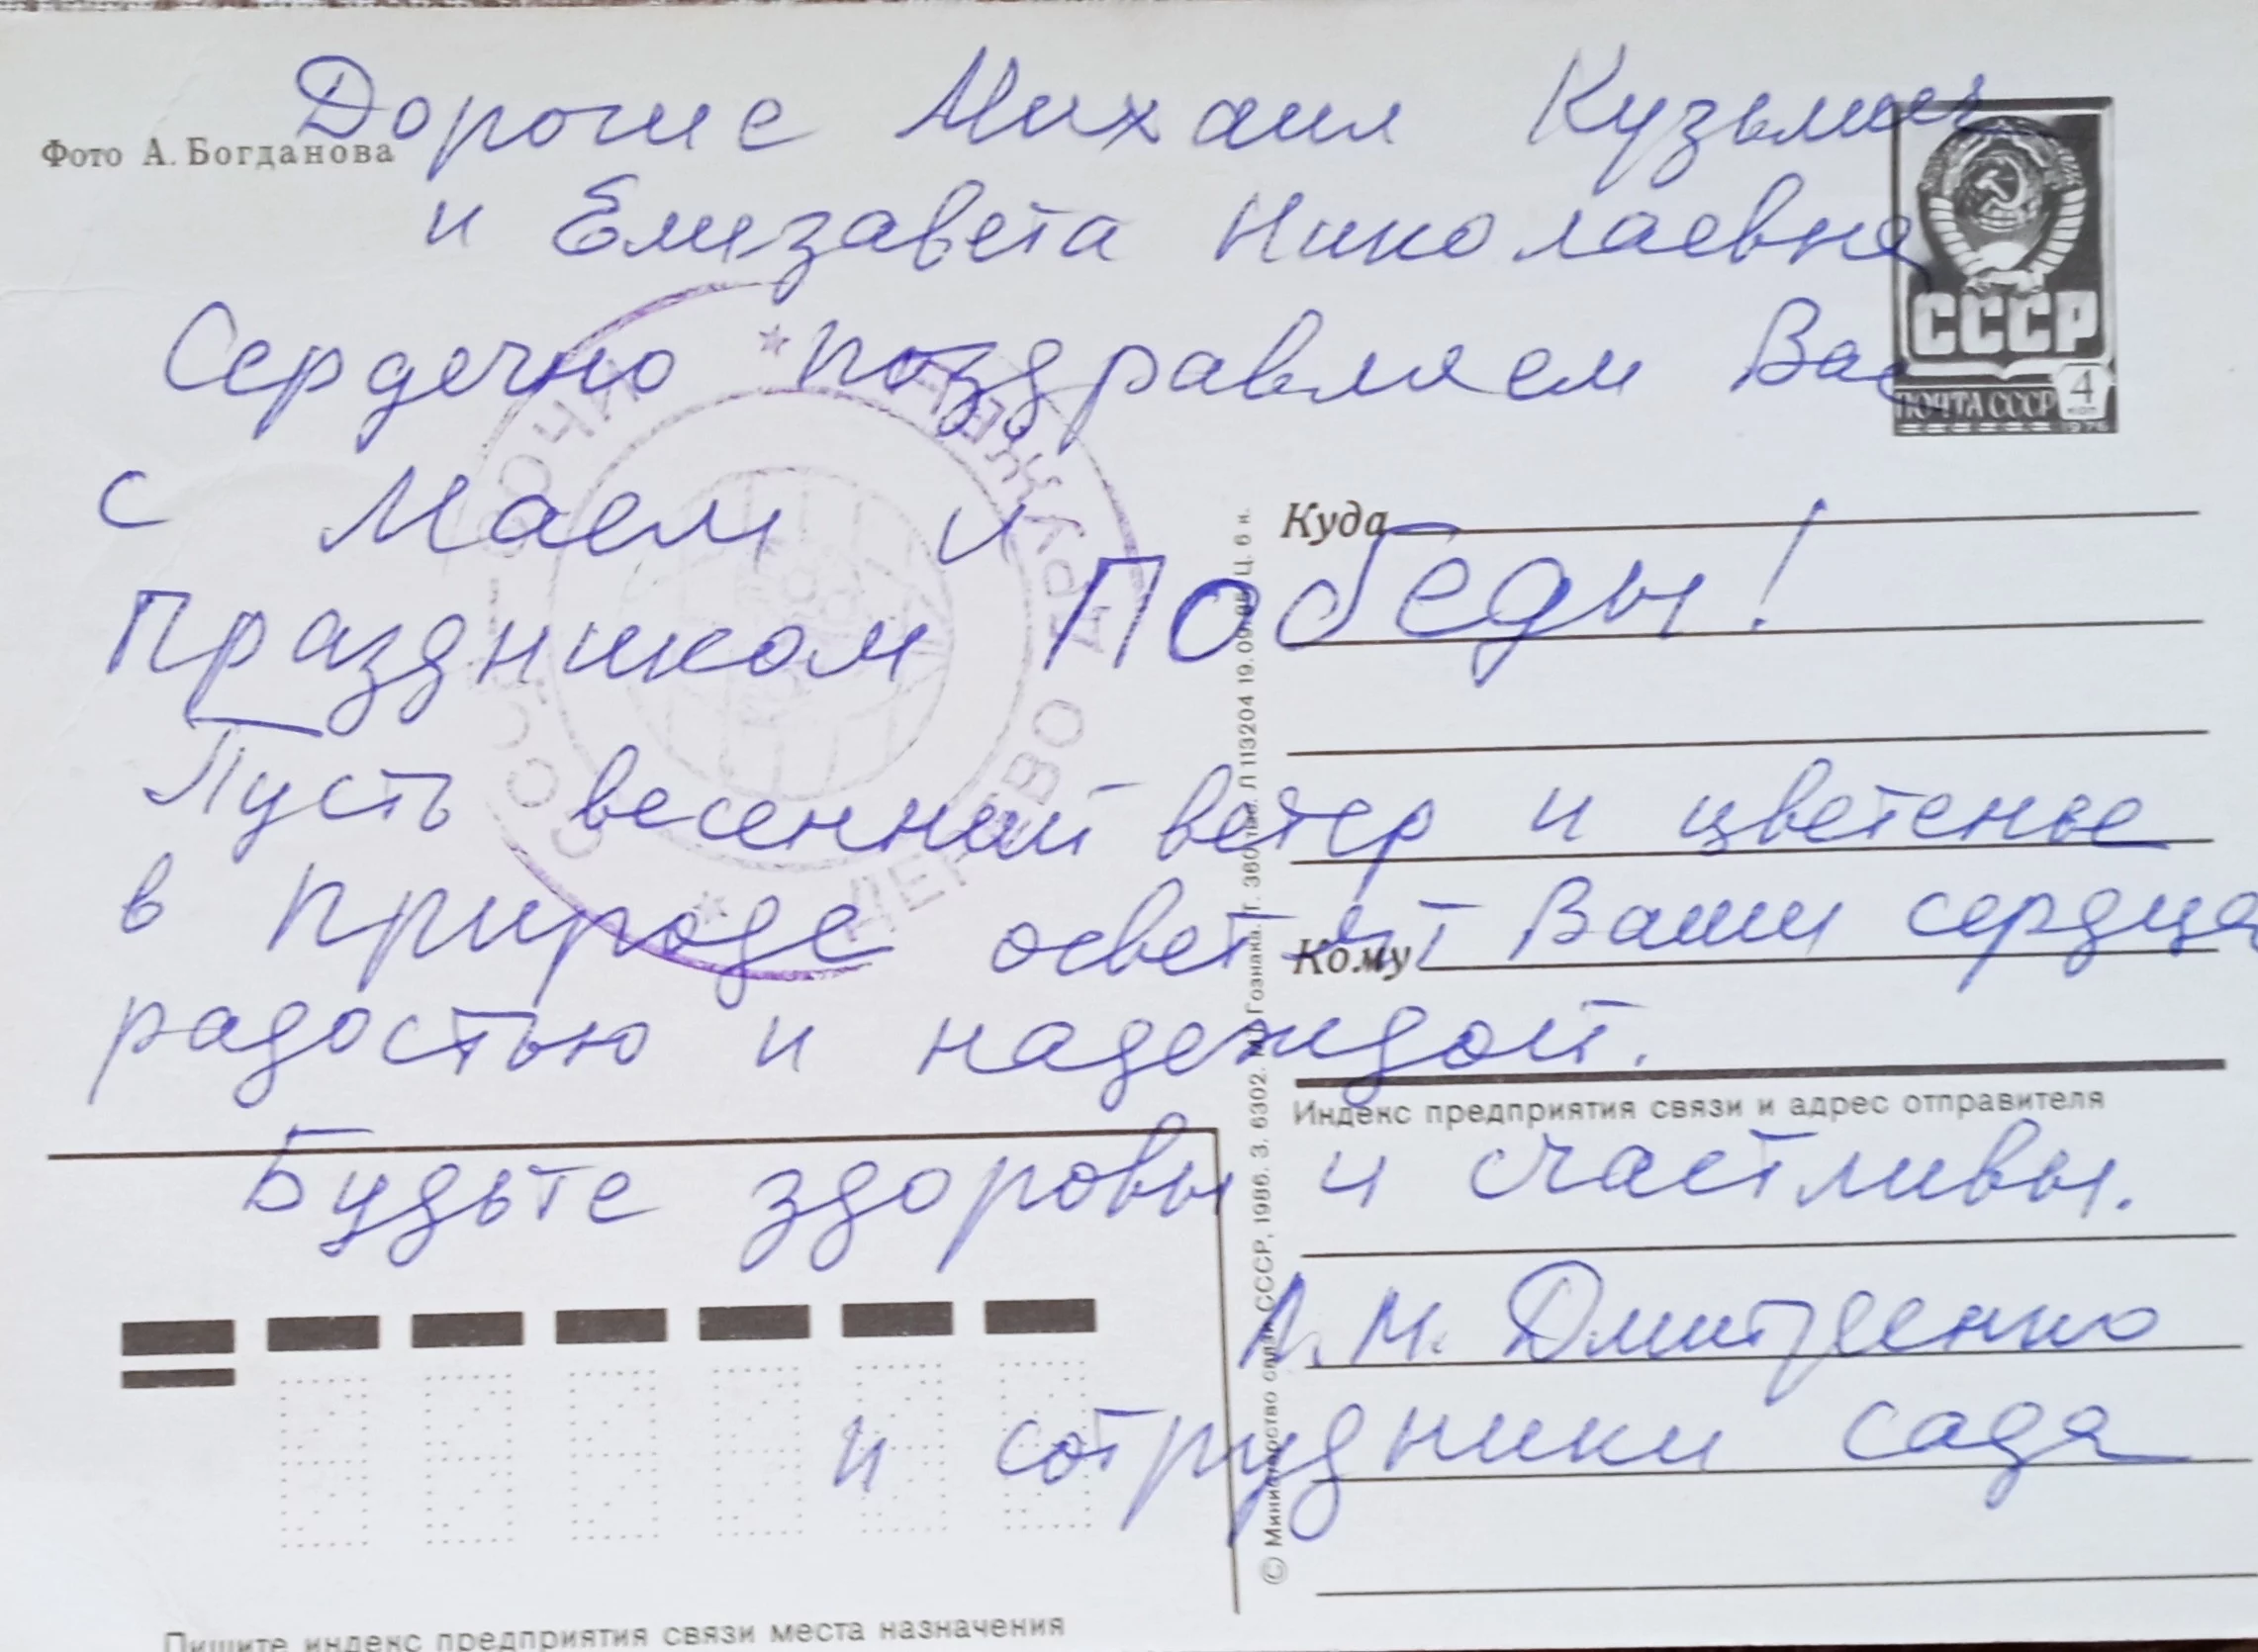 Дорогие Михаил Кузьмич
Фото А. Богданова
и Елизавета Николаевна
Сердечно поздравляем Вас
СССР
4
коп
ПОЧТА СССР
1976
с Маем и
Праздником Победы!
Куда
Пусть весенний ветер и цветенье
в природе осветят Ваши сердца
Кому
радостью и надеждой.
Индекс предприятия связи и адрес отправителя
Будьте здоровы и счастливы.
А. М. Дмитренко
и сотрудники сада
© Министерство связи СССР, 1986. З. 6302. Гознака. Л 113204 19.09. Ц. 6 к.
Пишите индекс предприятия связи места назначения